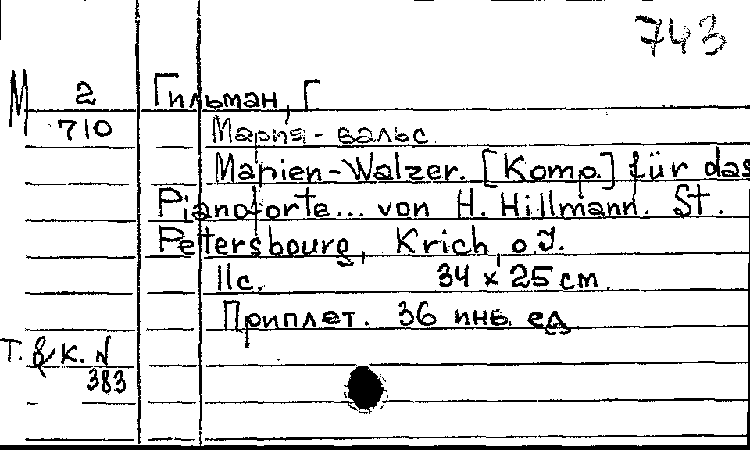 743
М 2 Гильман, Г
710 Мария - вальс.
Marien-Walzer. [Komp.] für das
Pianoforte... von H. Hillmann. St.
Petersbourg, Krich, o.J.
11c. 34 x 25 cm
Приплет. 36 инв. ед
Т. В/К. N
383